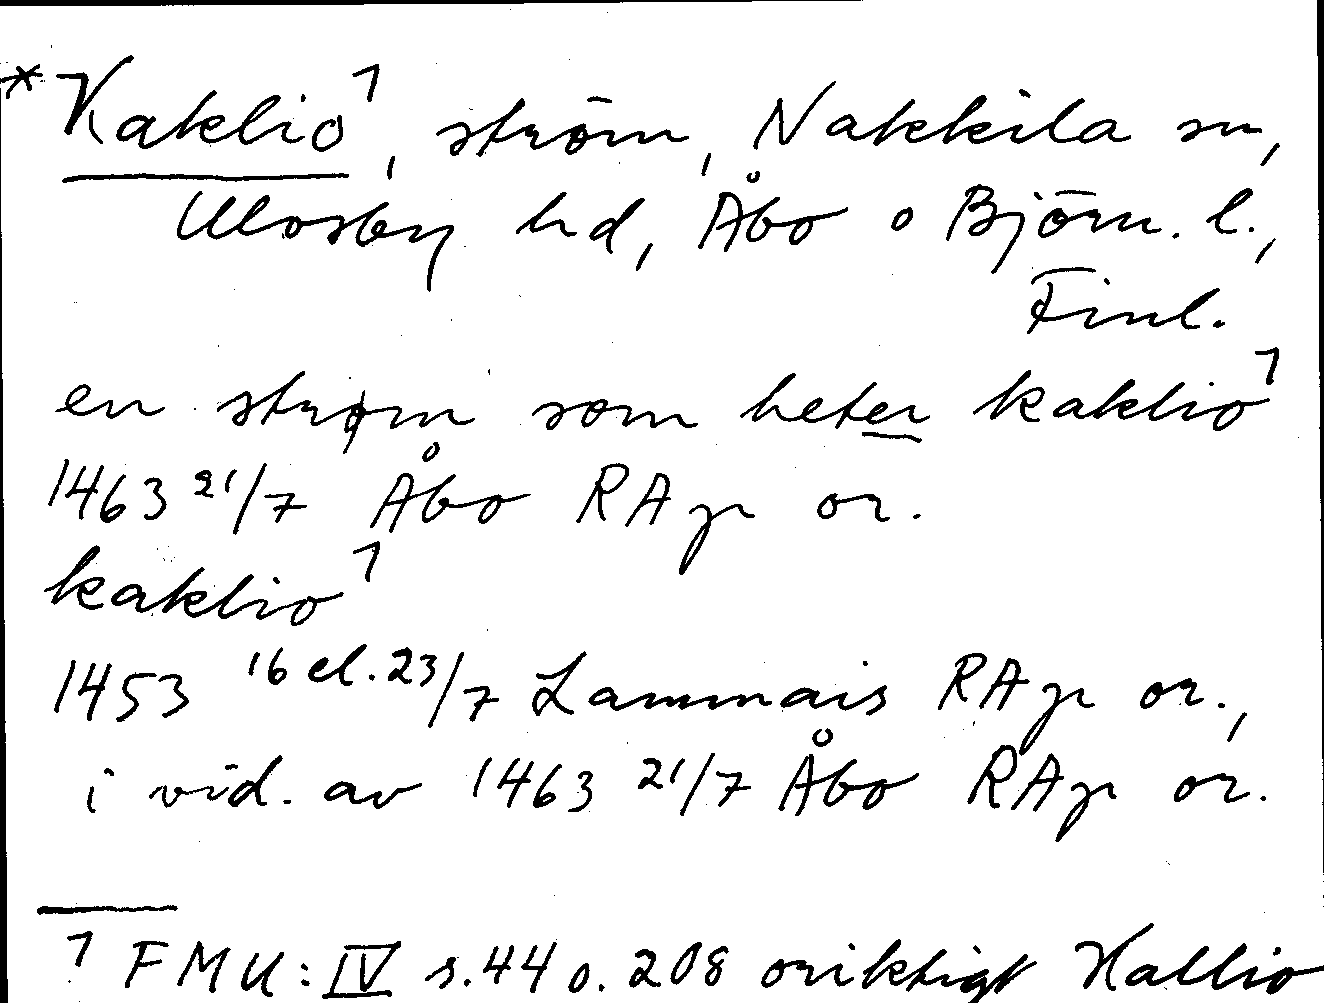 *Kaklio¹, ström, Nakkila sn,
Ulvsby hd, Åbo o Björn. l.,
Finl.
en strøm som heter kaklio¹
1463 21/7 Åbo RAp or.
kaklio¹
1453 16 el. 23/7 Lammais RAp or.,
i vid. av 1463 21/7 Åbo RAp or.
¹ FMU: IV s. 44 o. 208 oriktigt Kallio